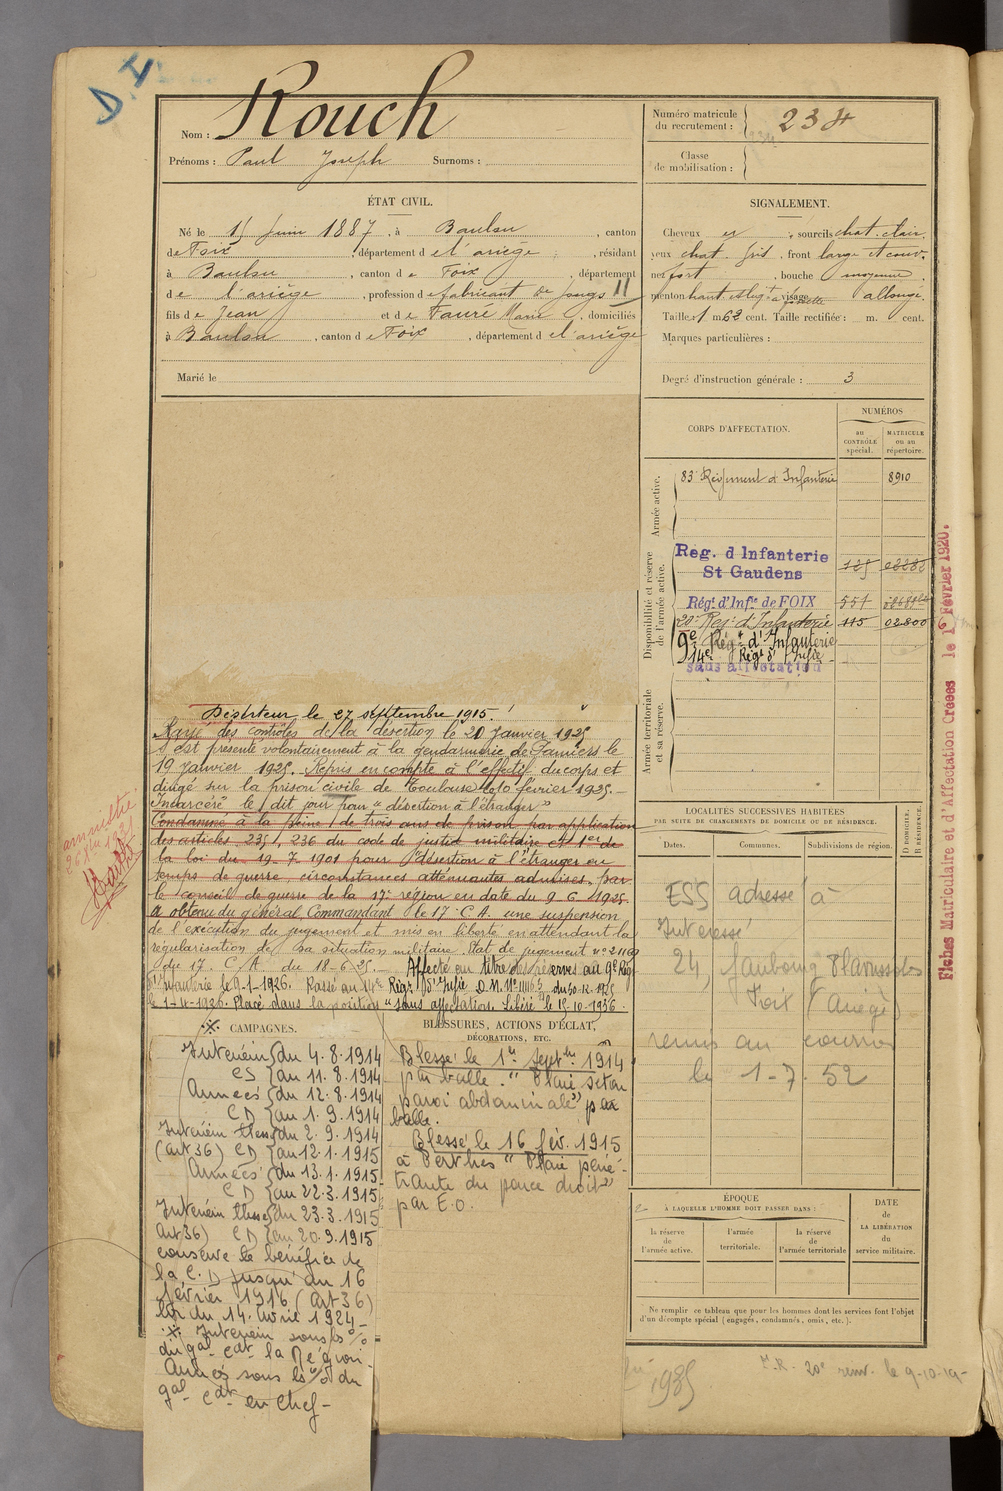 D.
Nom : Rouch
Prénoms : Paul Joseph Surnoms :
Numéro matricule du recrutement : 234
Classe de mobilisation :
ÉTAT CIVIL.
Né le 15 Juin 1887, à Baulou, canton
de Foix, département de l'ariège, résidant
à Baulou, canton de Foix, département
de l'ariège, profession de fabricant de jougs 11
fils de Jean et de Fauré Marie, domiciliés
à Baulou, canton de Foix, département de l'ariège
Marié le
SIGNALEMENT.
Cheveux et, sourcils chat. clair
yeux chat. gris, front large et couv.
nez fort, bouche moyenne
menton haut et légt à fossette visage allongé.
Taille : 1 m 62 cent. Taille rectifiée : m. cent.
Marques particulières :
Degré d'instruction générale : 3
CORPS D'AFFECTATION.
NUMÉROS
au CONTRÔLE spécial.
MATRICULE ou au répertoire.
Armée active.
83e Régiment d'Infanterie 8910
Disponibilité et réserve de l'armée active.
Reg. d Infanterie
St Gaudens
Régt d'Infie de FOIX 557
20e Reg. d'Infanterie 115 02800
9e Régt d'Infanterie
14e Régt d'Infie
sans affectation
Armée territoriale et sa réserve.
Fiches Matriculaire et d'Affectation Créées le 1e Février 1920.
Déserteur le 27 septembre 1915.
Rayé des contrôles de la désertion le 20 Janvier 1925
S'est présenté volontairement à la gendarmerie de Pamiers le
19 janvier 1925. Repris en compte à l'effectif du corps et
dirigé sur la prison civile de Toulouse le 10 février 1925.
Incarcéré le dit jour pour "désertion à l'étranger"
Condamné à la peine de trois ans de prison par application
des articles 235, 236 du code de justice militaire et 1er de
la loi du 19-7-1901 pour "Désertion à l'étranger en
temps de guerre, circonstances atténuantes admises, par
le conseil de guerre de la 17e région en date du 9 6 1925.
a obtenu du général Commandant le 17e C.A. une suspension
de l'exécution du jugement et mis en liberté en attendant la
régularisation de sa situation militaire. Etat de jugement n° 21169
du 17. C. A. du 18-6-25. Affecté au titre des réserves au 9e Rég
d'Infanterie le 9-1-1926. Passé au 14e Régt d'Infie
le 1-4-1936. Placé dans la position "sans affectation. Libéré le 15-10-1936.
amnistie
CAMPAGNES.
Intérieur du 4.8.1914
CS au 11.8.1914
Armées du 12.8.1914
CD au 1.9.1914
Intérieur bless du 2.9.1914
(art 36) CD au 12.1.1915
Armées du 13.1.1915
CD au 22.3.1915
Intérieur bless du 23.3.1915
Art 36) CD au 20.9.1915
conserve le bénéfice de
la C.D jusqu'au 16
février 1916 (Art 36)
loi du 14 avril 1924-
Intérieur sous ls o/o
du gal cdt la Région.
Armées sous ls o/o du
gal cdt en chef-
BLESSURES, ACTIONS D'ÉCLAT,
DÉCORATIONS, ETC.
Blessé le 1er septbre 1914
par balle. "Plaie séton
paroi abdominale" par
balle.
Blessé le 16 fév. 1915
à Perthes "Plaie péné-
trante du pouce droit"
par E.O.
LOCALITÉS SUCCESSIVES HABITÉES
PAR SUITE DE CHANGEMENTS DE DOMICILE OU DE RÉSIDENCE.
Dates. Communes. Subdivisions de région. D domicile, R résidence.
ESS adressé à
Intéressé
24, faubourg Planissoles
Foix (Ariège)
remis au courrier
le 1-7-52
ÉPOQUE
À LAQUELLE L'HOMME DOIT PASSER DANS :
la réserve de l'armée active.
l'armée territoriale.
la réserve de l'armée territoriale
DATE de LA LIBÉRATION du service militaire.
Ne remplir ce tableau que pour les hommes dont les services font l'objet
d'un décompte spécial (engagés, condamnés, omis, etc.).
1935
le 9-10-19-